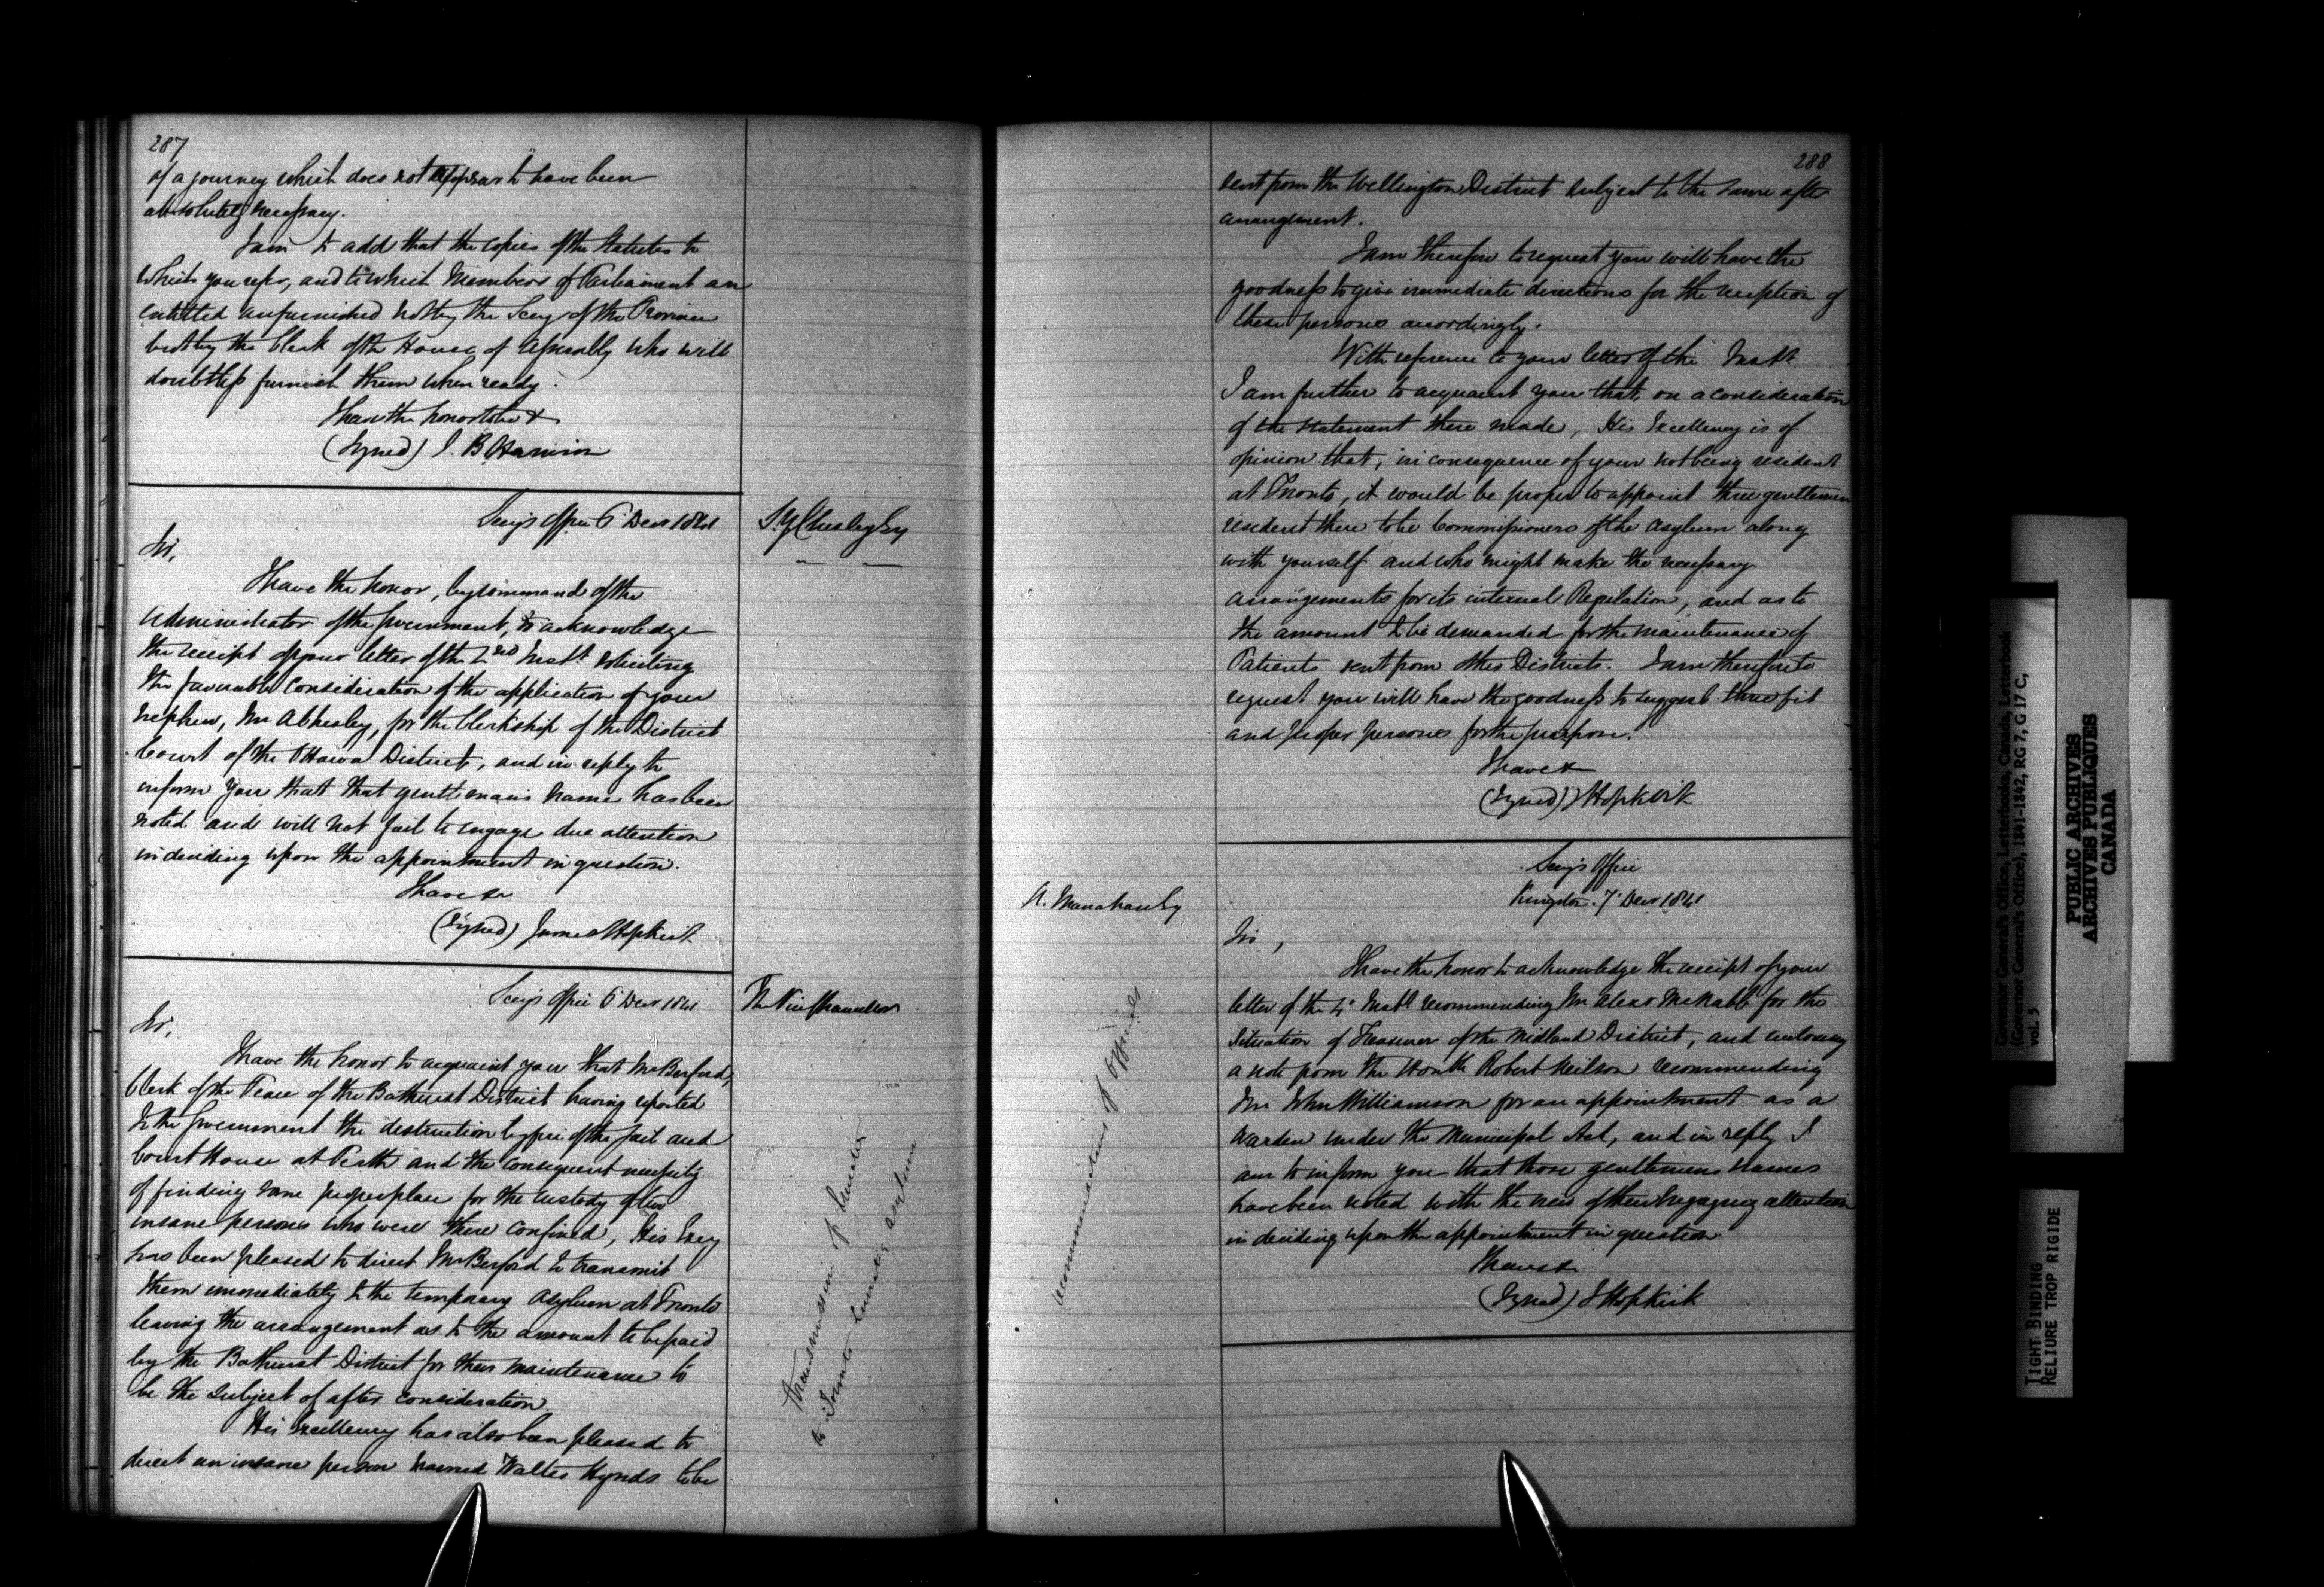 287
of a journey which does not appear to have been
absolutely necessary.
I am to add that the copies of the Statutes to
which you refer, and to which Members of Parliament are
entitled are furnished not by the Secy of the Province
but by the Clerk of the House of Assembly who will
doubtless furnish them when ready.
I have the honor to be &
(Signed) S. B. Harrison
Secy's Office 6 Decr 1841
S. Y. Chesley Esy
Sir,
I have the honor, by command of the
Administrator of the Government, to acknowledge
the receipt of your letter of the 2nd Instt. soliciting
the favourable consideration of the application of your
nephew, Mr A Chesley, for the Clerkship of the District
Court of the Ottawa District, and in reply to
inform you that that gentleman's name has been
noted and will not fail to engage due attention
in deciding upon the appointment in question.
I have &
(Signed) James Hopkirk
Secy's Office 6 Decr 1841
The Vice Chancellor
Sir,
I have the honor to acquaint you that Mr Berford,
Clerk of the Peace of the Bathurst District having reported
to the Government the destruction by fire of the Jail and
Court House at Perth and the consequent necessity
of finding some proper place for the custody of two
insane persons who were there confined, His Excy
has been pleased to direct Mr Berford to transmit
them immediately to the temporary Asylum at Toronto
leaving the arrangement as to the amount to be paid
by the Bathurst District for their maintenance to
be the subject of after consideration.
His Excellency has also been pleased to
direct an insane person named Walter Hynds to be
Transmission of Lunatics
to Toronto Lunatic asylum
288
sent from the Wellington District subject to the same after
arrangement.
I am therefore to request you will have the
goodness to give immediate directions for the reception of
these persons accordingly.
With reference to your letter of the Instt
I am further to acquaint you that, on a consideration
of the statement there made, His Excellency is of
opinion that, in consequence of your not being resident
at Toronto, it would be proper to appoint three gentlemen
resident there to be Commissioners of the Asylum along
with yourself and who might make the necessary
arrangements for its internal Regulation, and as to
the amount to be demanded for the maintenance of
Patients sent from other Districts. I am therefore to
request you will have the goodness to suggest three fit
and proper persons for the purpose.
I have &
(Signed) J Hopkirk
Secy's Office
Kingston. 7 Decr 1841
A. Manahan Esy
Sir,
I have the honor to acknowledge the receipt of your
letter of the Instt recommending Mr Alexr McNabb for the
Situation of Treasurer of the Midland District, and enclosing
a note from the Honble Robert Neilson recommending
Mr John Williamson for an appointment as a
Warden under the Municipal Act, and in reply I
am to inform you that those gentlemens names
have been noted with the view of their engaging attention
in deciding upon the appointment in question.
I have &
(Signed) J Hopkirk
recommendations of Officials
Governor General's Office, Letterbooks, Canada, Letterbook
(Governor General's Office), 1841-1842, RG 7, G 17 C,
vol. 5
PUBLIC ARCHIVES
ARCHIVES PUBLIQUES
CANADA
TIGHT BINDING
RELIURE TROP RIGIDE